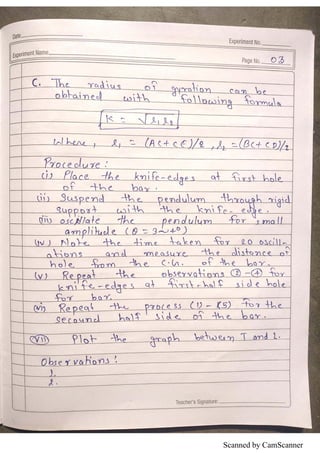 Date
Experiment No.
Experiment Name
Page No. 03
C. The radius of gyration can be
obtained with following formula
K = √l₁l₂
Where, l₁ = (AC+CE)/2, l₂ = (BC+CD)/2
Procedure:
(i) Place the knife-edges at first hole
of the bar.
(ii) Suspend the pendulum through rigid
support with the knife edge.
(iii) oscillate the pendulum for small
amplitude (θ = 3~4°)
(iv) Note the time taken for 20 oscill-
ations and measure the distance of
hole from the C.G. of the bar.
(v) Repeat the observations ②-④ for
knife-edges at first-half side hole
for bar.
(vi) Repeat the process (1)-(5) for the
secound half side of the bar.
(vii) Plot the graph between T and l.
Observations:
1.
2.
Teacher's Signature
Scanned by CamScanner